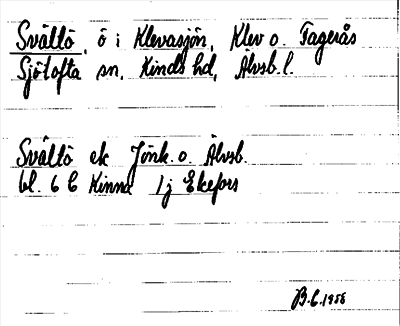 Svältö, ö i Klevasjön, Klev o. Fagerås
Sjötofta sn, Kinds hd, Älvsb. l.
Svältö ek Jönk. o. Älvsb.
bl. 6 C Kinna 1j Ekefors
B.C. 1956